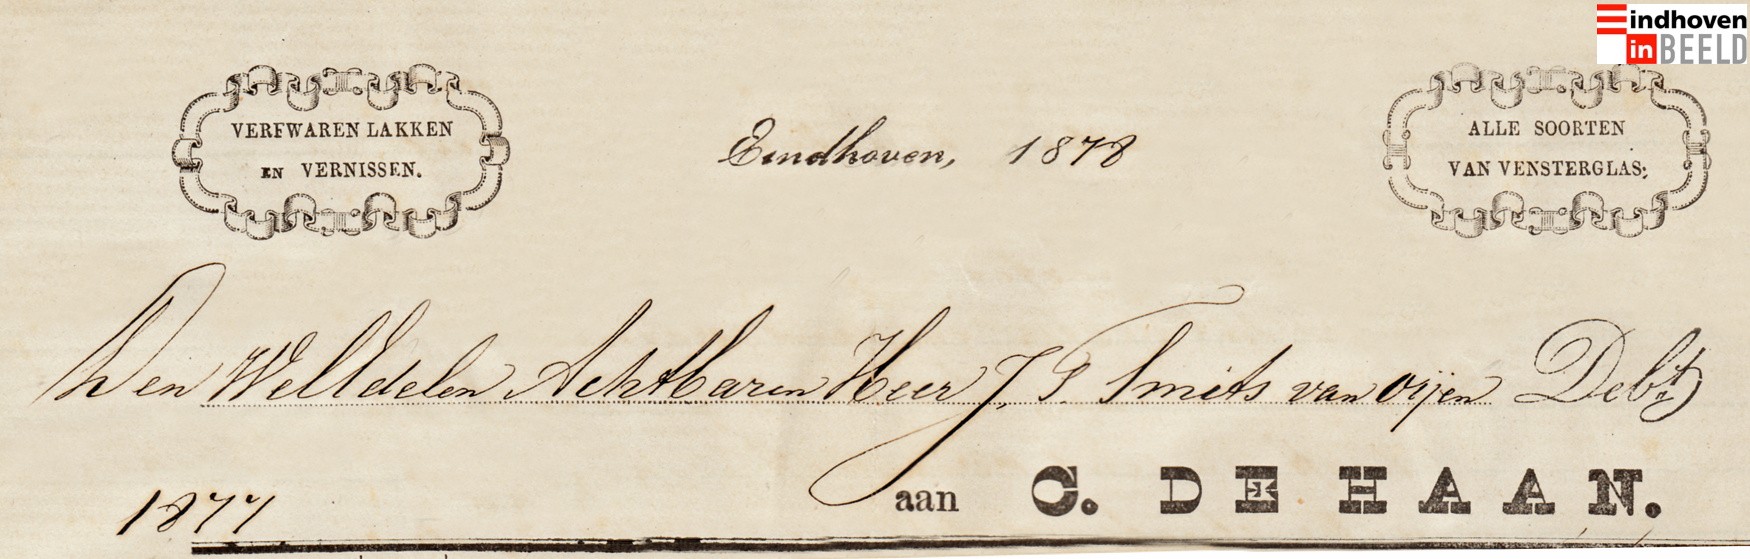 Eindhoven
in BEELD
VERFWAREN LAKKEN
EN VERNISSEN.
Eindhoven, 1878
ALLE SOORTEN
VAN VENSTERGLAS;
Den WelEdelen Achtbaren Heer J. T. Smits van Oijen Debt
aan C. DE HAAN.
1877